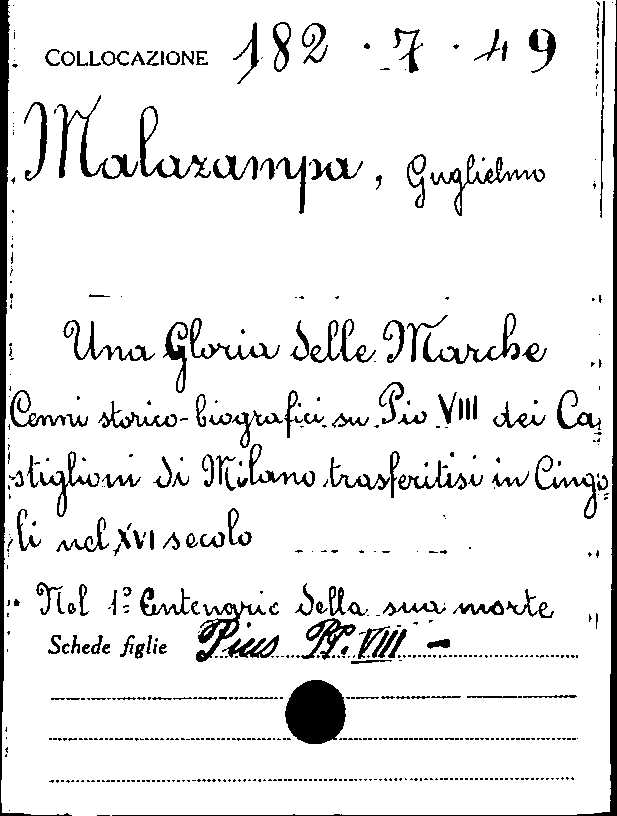 COLLOCAZIONE 182 · 7 · 49
Malazampa, Guglielmo
Una Gloria delle Marche
Cenni storico-biografici su Pio VIII dei Ca,
stiglioni di Milano trasferitisi in Cingo,
li nel XVI secolo
Nel 1º Centenario della sua morte
Schede figlie Pius PP. VIII -